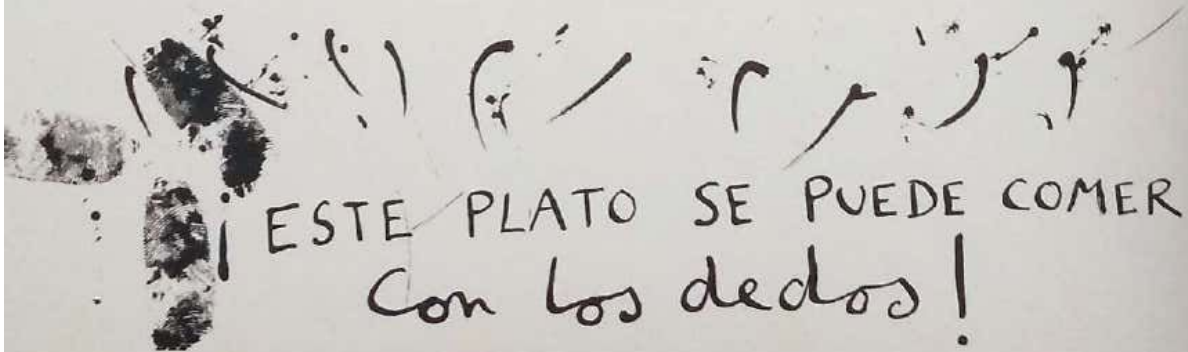 ¡ESTE PLATO SE PUEDE COMER
con los dedos!